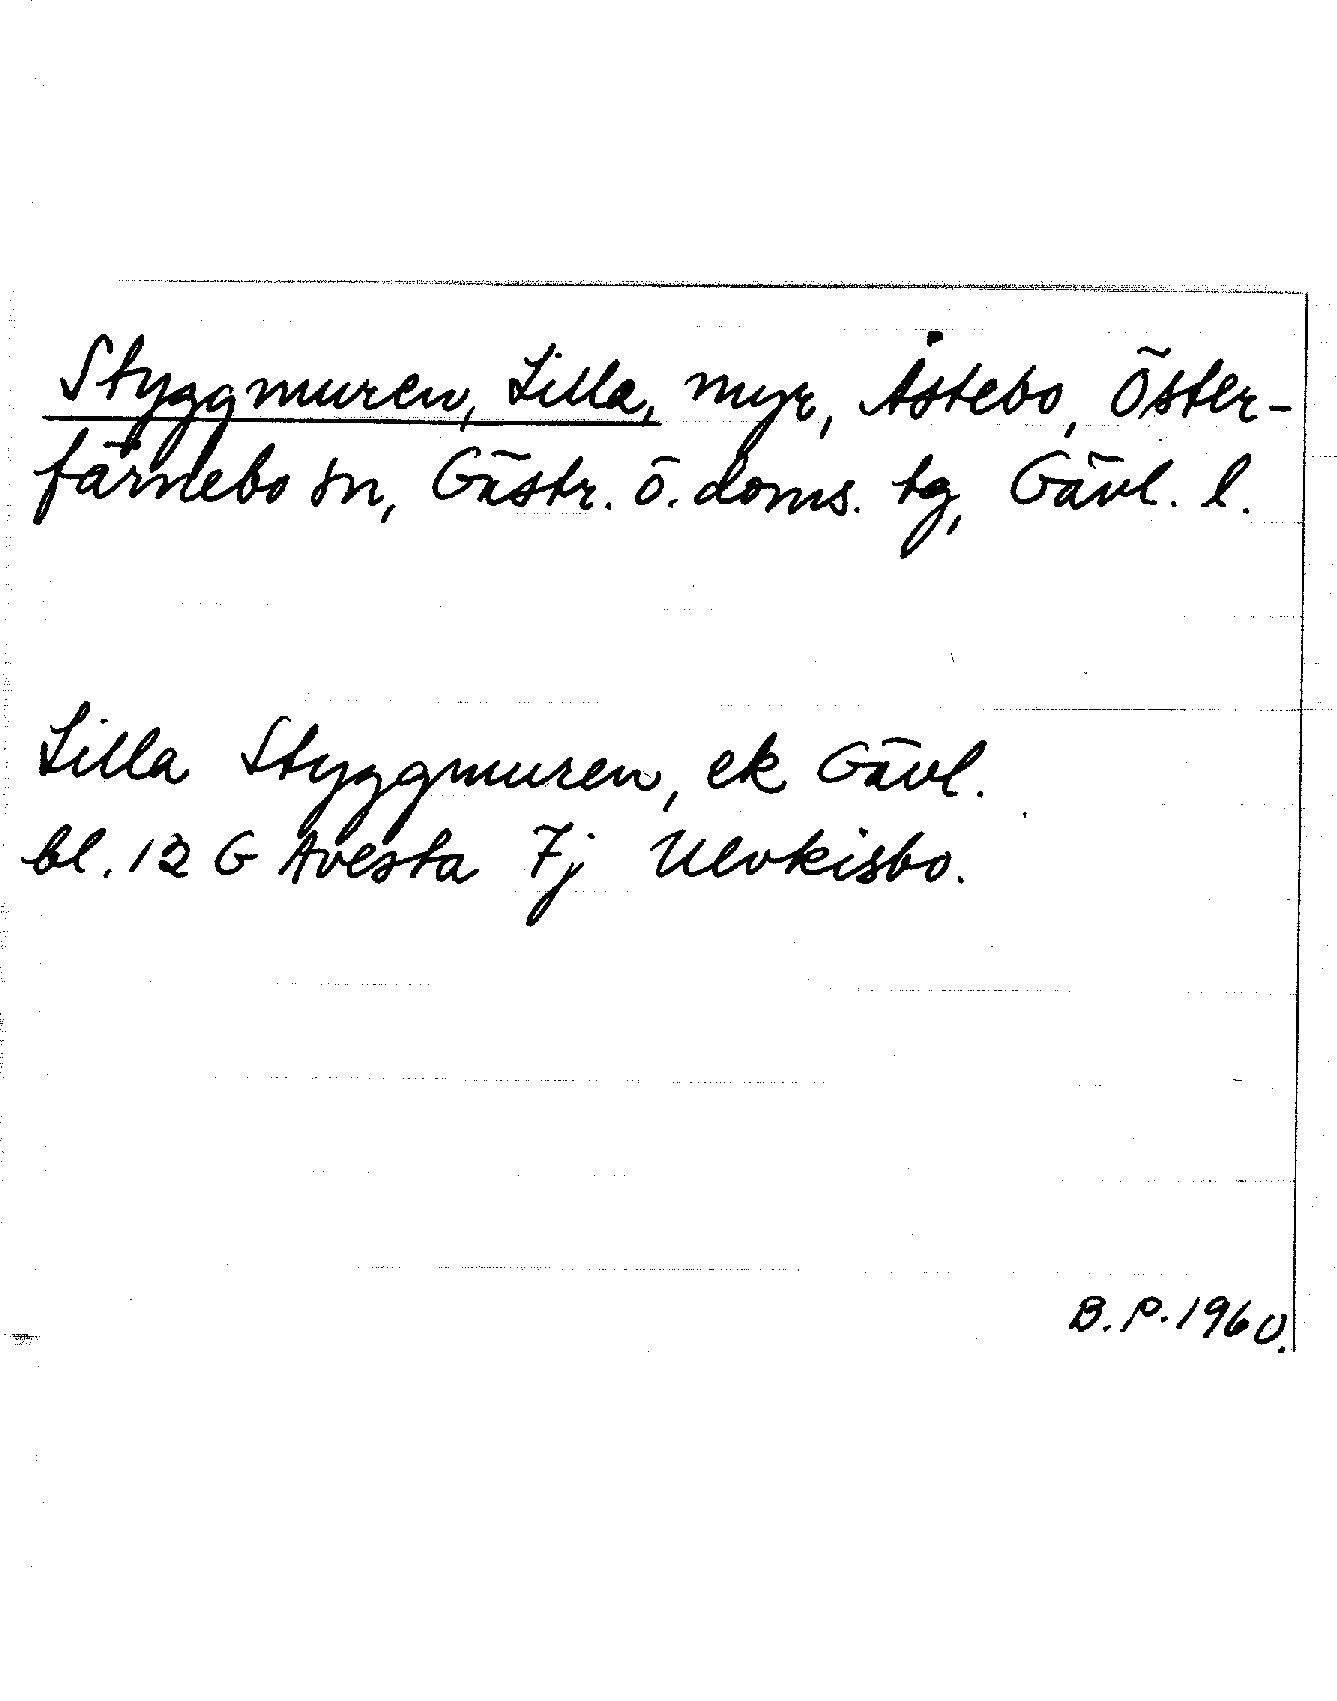 Styggmuren, Lilla, myr, Åstebo, Öster-
färnebo sn, Gästr. ö. doms. tg, Gävl. l.
Lilla Styggmuren, ek Gävl.
bl. 12 G Avesta 7j Ulvkisbo.
B. P. 1960.